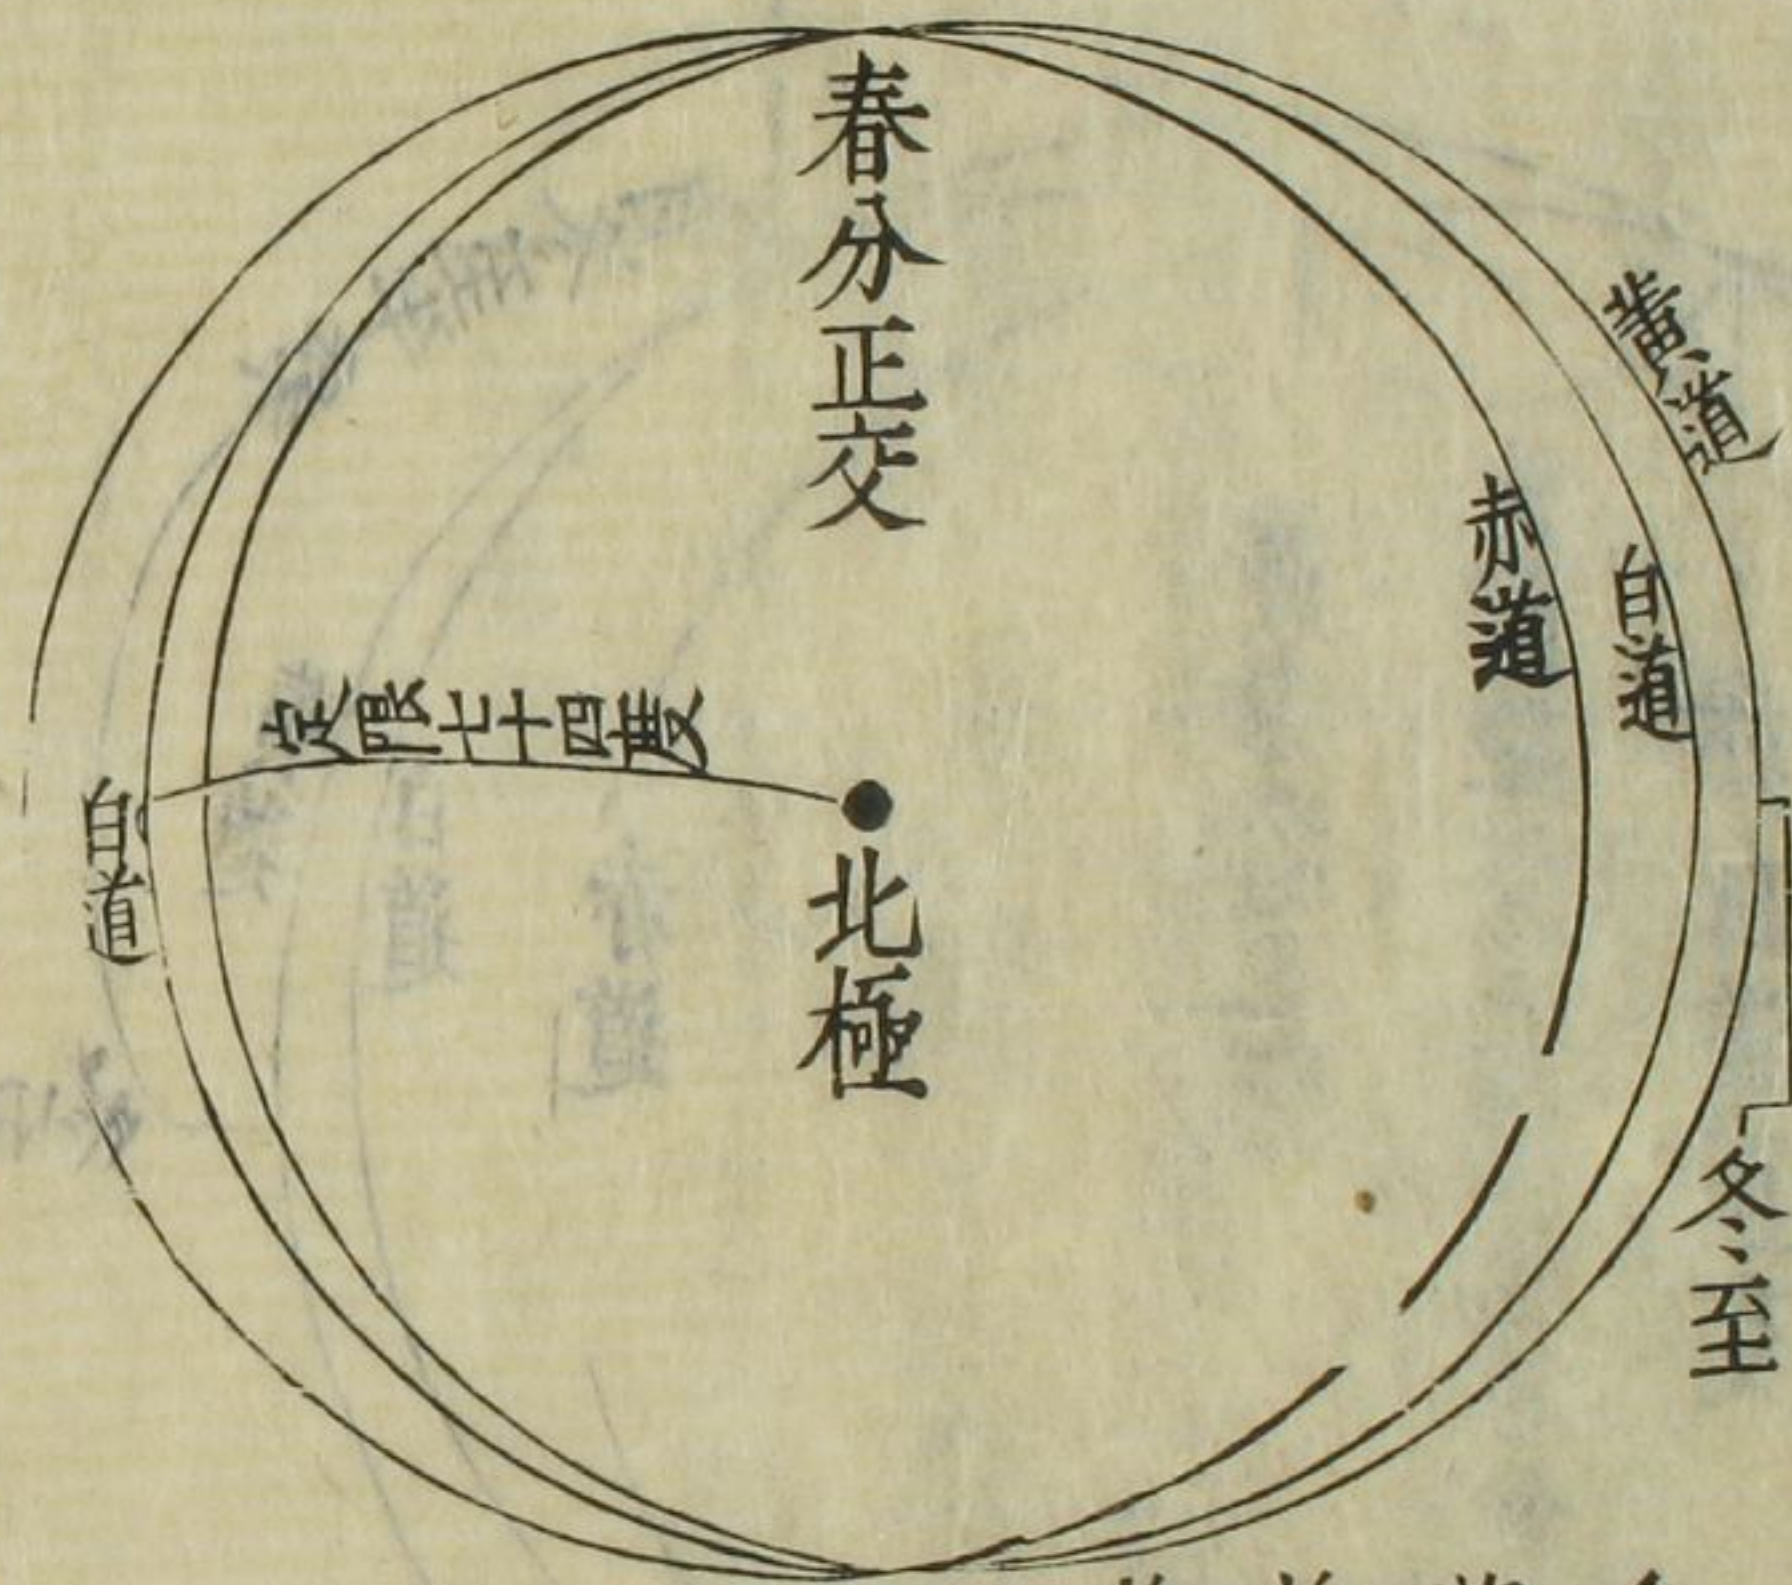 春分正交
黃道
赤道
白道
定限七十四度
白道
北極
冬至